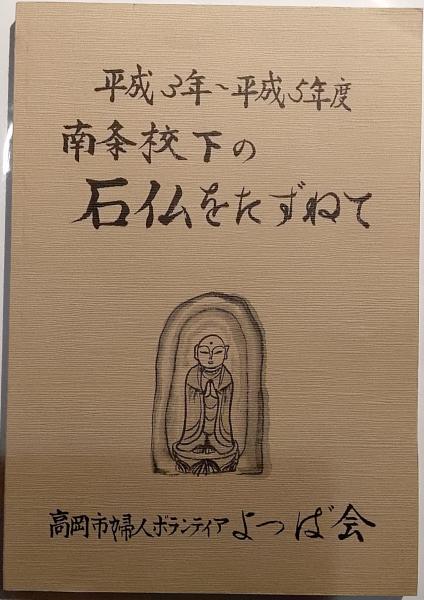 平成3年~平成5年度
南条校下の
石仏をたずねて
高岡市婦人ボランティア よつば会